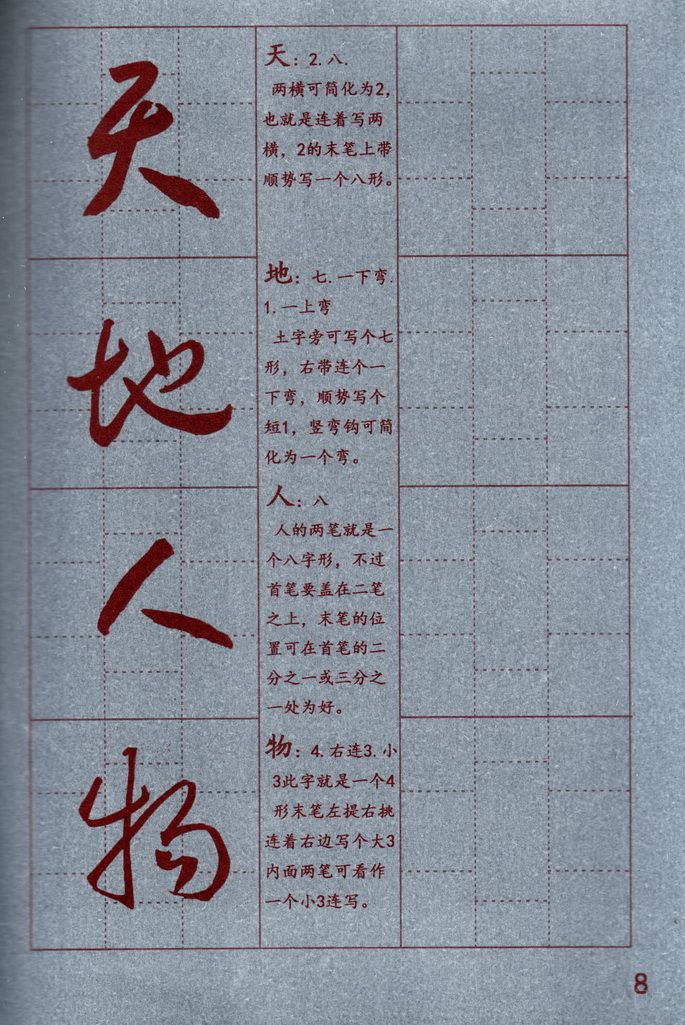 天
天：2.八.
两横可简化为2，
也就是连着写两
横，2的末笔上带
顺势写一个八形。
地
地：七.一下弯.
1.一上弯
土字旁可写个七
形，右带连个一
下弯，顺势写个
短1，竖弯钩可简
化为一个弯。
人
人：八
人的两笔就是一
个八字形，不过
首笔要盖在二笔
之上，末笔的位
置可在首笔的二
分之一或三分之
一处为好。
物
物：4.右连3.小
3此字就是一个4
形末笔左提右挑
连着右边写个大3
内面两笔可看作
一个小3连写。
8